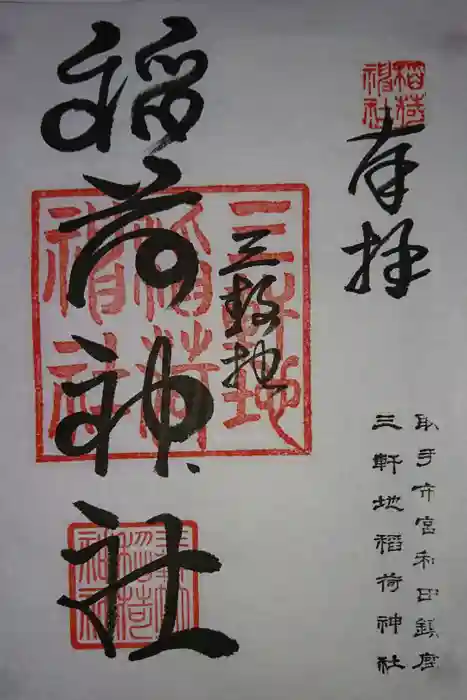 稲荷神社
奉拝
取手市宮和田鎮座
三軒地稲荷神社
三軒地
稲荷神社
三軒地稲荷神社